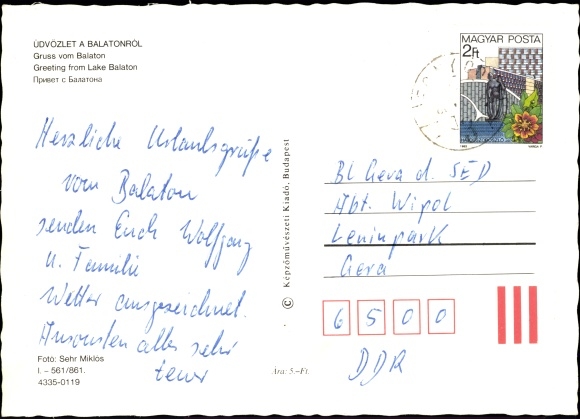 ÜDVÖZLET A BALATONRÓL
Gruss vom Balaton
Greeting from Lake Balaton
Привет с Балатона
MAGYAR POSTA
2Ft
Herzliche Urlaubsgrüße
vom Balaton
senden Euch Wolfgang
u. Familie
Wetter ausgezeichnet.
Ansonsten alles sehr
teuer
Foto: Sehr Miklós
I. – 561/861.
4335-0119
Ára: 5.–Ft.
© Képzőművészeti Kiadó, Budapest
BL Gera d. SED
Abt. Wipol
Leninpark
Gera
6 5 0 0
DDR